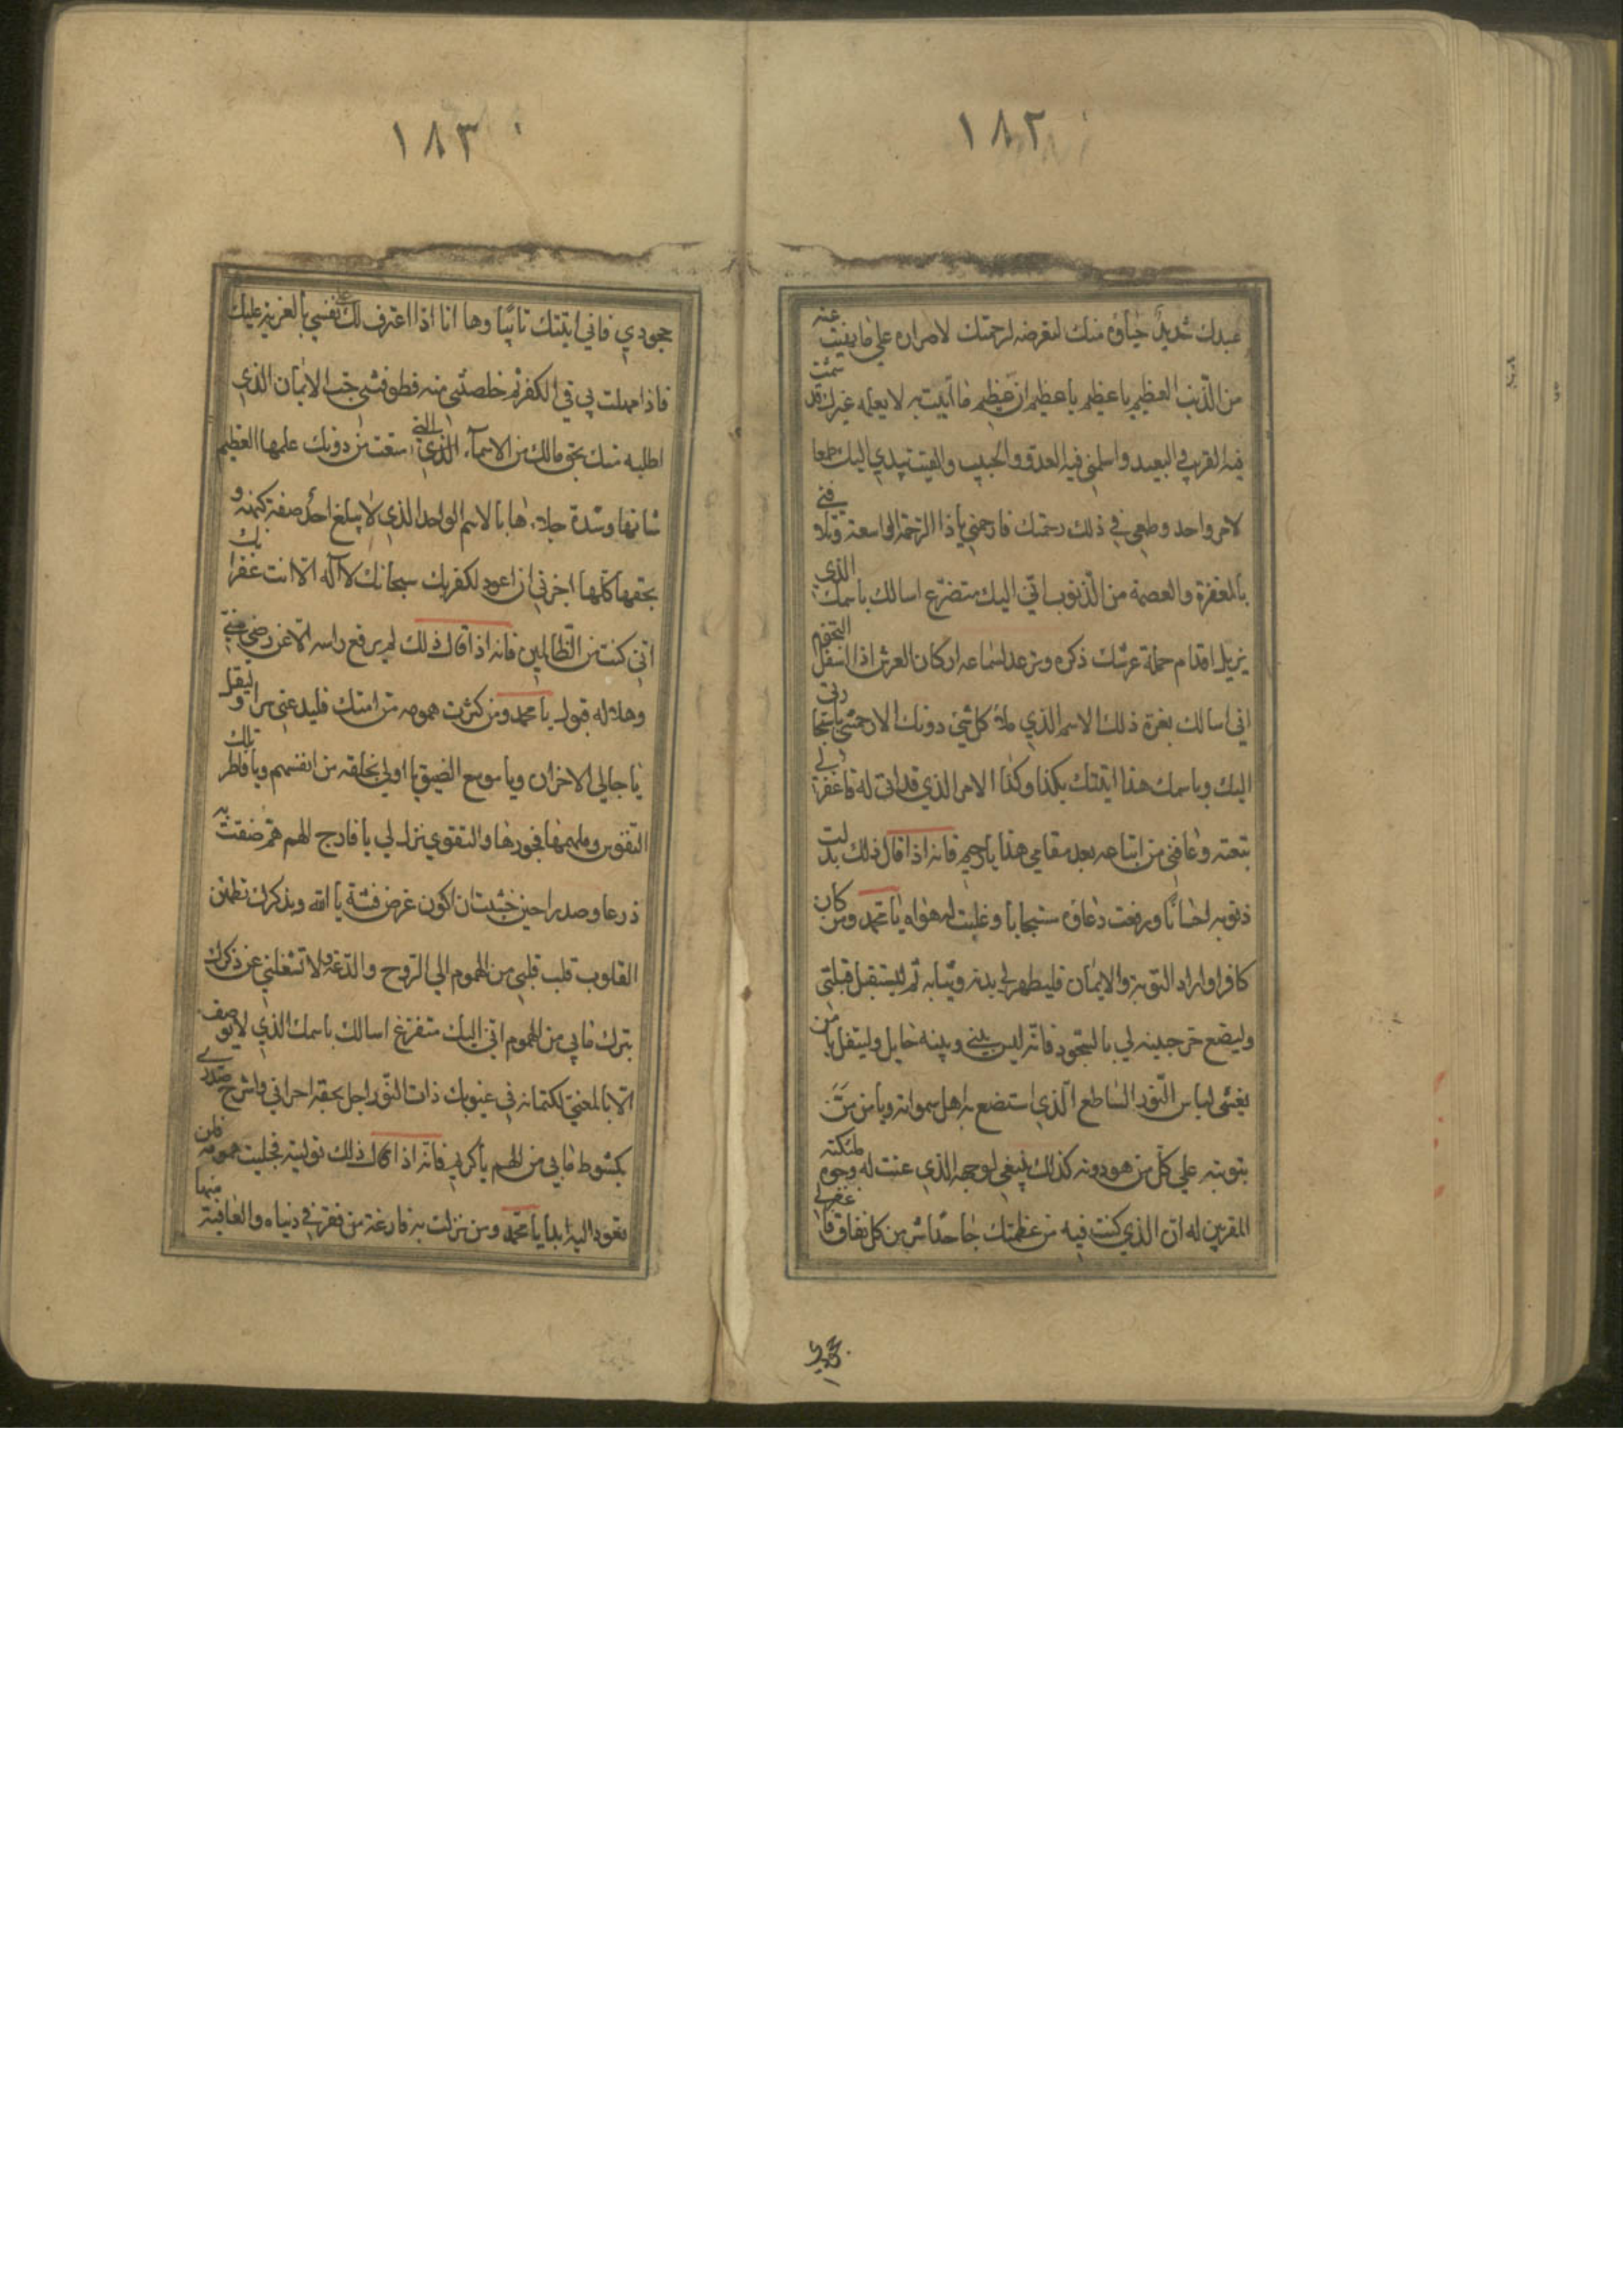 ١٨٢
عبدك شديد حياؤه منك لتعرضه لرحمتك لاصراره على ما نهيت عنه
من الذنب العظيم يا عظيم يا عظيم ان عظيم ما اتيت به لا يعلمه غيرك قد شمت
فيه القريب والبعيد واسلمني فيه العدو والحبيب والقيت بيدي اليك طمعا
لامر واحد وطمعي في ذلك رحمتك فارحمني يا ذا الرحمة الواسعة وتلافني
بالمغفرة والعصمة من الذنوب اني اليك متضرع اسالك باسمك الذي
يزيل اقدام حملة عرشك ذكره وترعد لسماعه اركان العرش الى اسفل التخوم
اني اسالك بعزة ذلك الاسم الذي ملأ كل شي دونك الا رحمتني باستجارتي
اليك وباسمك هذا اتيتك بكذا وكذا الامر الذي قد اتى له فاغفر لي
تبعته وعافني من اتباعه بعد مقامي هذا يا رحيم فانه اذا قال ذلك بدلت
ذنوبه احسانا ورفعت دعاؤه مستجابا وغلبت له هواه يا محمد ومن كان
كافرا واراد التوبة والايمان فليطهر لي بدنه وثيابه ثم ليستقبل قبلتي
وليضع حر جبينه لي بالسجود فانه ليس بيني وبينه حايل وليقل يا من
تغشى لباس النور الساطع الذي استضاء به اهل سمواته ويا من من
بتوبته علي كل من هو دونه كذلك ينبغي لوجهه الذي عنت له وجوه ملئكته
المقربين له ان الذي كنت فيه من عظمتك جاحدا شر من كل نفاق فاغفر لي
جحودي
١٨٣
جحودي فاني اتيتك تائبا وها انا اذا اعترف لك على نفسي بالفرية عليك
فاذا امهلت بي في الكفر ثم خلصتني منه فطوقني حب الايمان الذي
اطلبه منك بحق مالك من الاسماء التي منعت من دونك علمها العظيم
شانها وشدة جلالها بالاسم الواحد الذي لا يبلغ احد صفة كنهه و
بحقها كلها اجرني ان اعود لكفر بك سبحانك لا اله الا انت غفرانك
اني كنت من الظالمين فانه اذا قال ذلك لم يرفع راسه الا عن رضى مني
وهذا له قبول يا محمد ومن كثرت همومه من امتك فليدعني سرا وليقل
يا جالي الاحزان ويا موسع الضيق يا اولى بخلقه من انفسهم ويا فاطر تلك
النفوس وملهمها فجورها والتقوى نزل بي يا فارج الهم هم ضقت به
ذرعا وصدرا حين خشيت ان اكون عرض فتنة يا الله وبذكرك تطمئن
القلوب قلب قلبي من الهموم الى الروح والدعة ولا تشغلني عن ذكرك
بترك ما بي من الهموم اني اليك متضرع اسالك باسمك الذي لا يوصف
الا بالمعنى لكتمانه في غيوبك ذات النور اجل بحقه احزاني واشرح صدري
بكشوط ما بي من الهم يا كريم فانه اذا قال ذلك توليته فجليت همومه فلن
تعود اليه ابدا يا محمد ومن نزلت به قارعة من فقر في دنياه والعافية منها